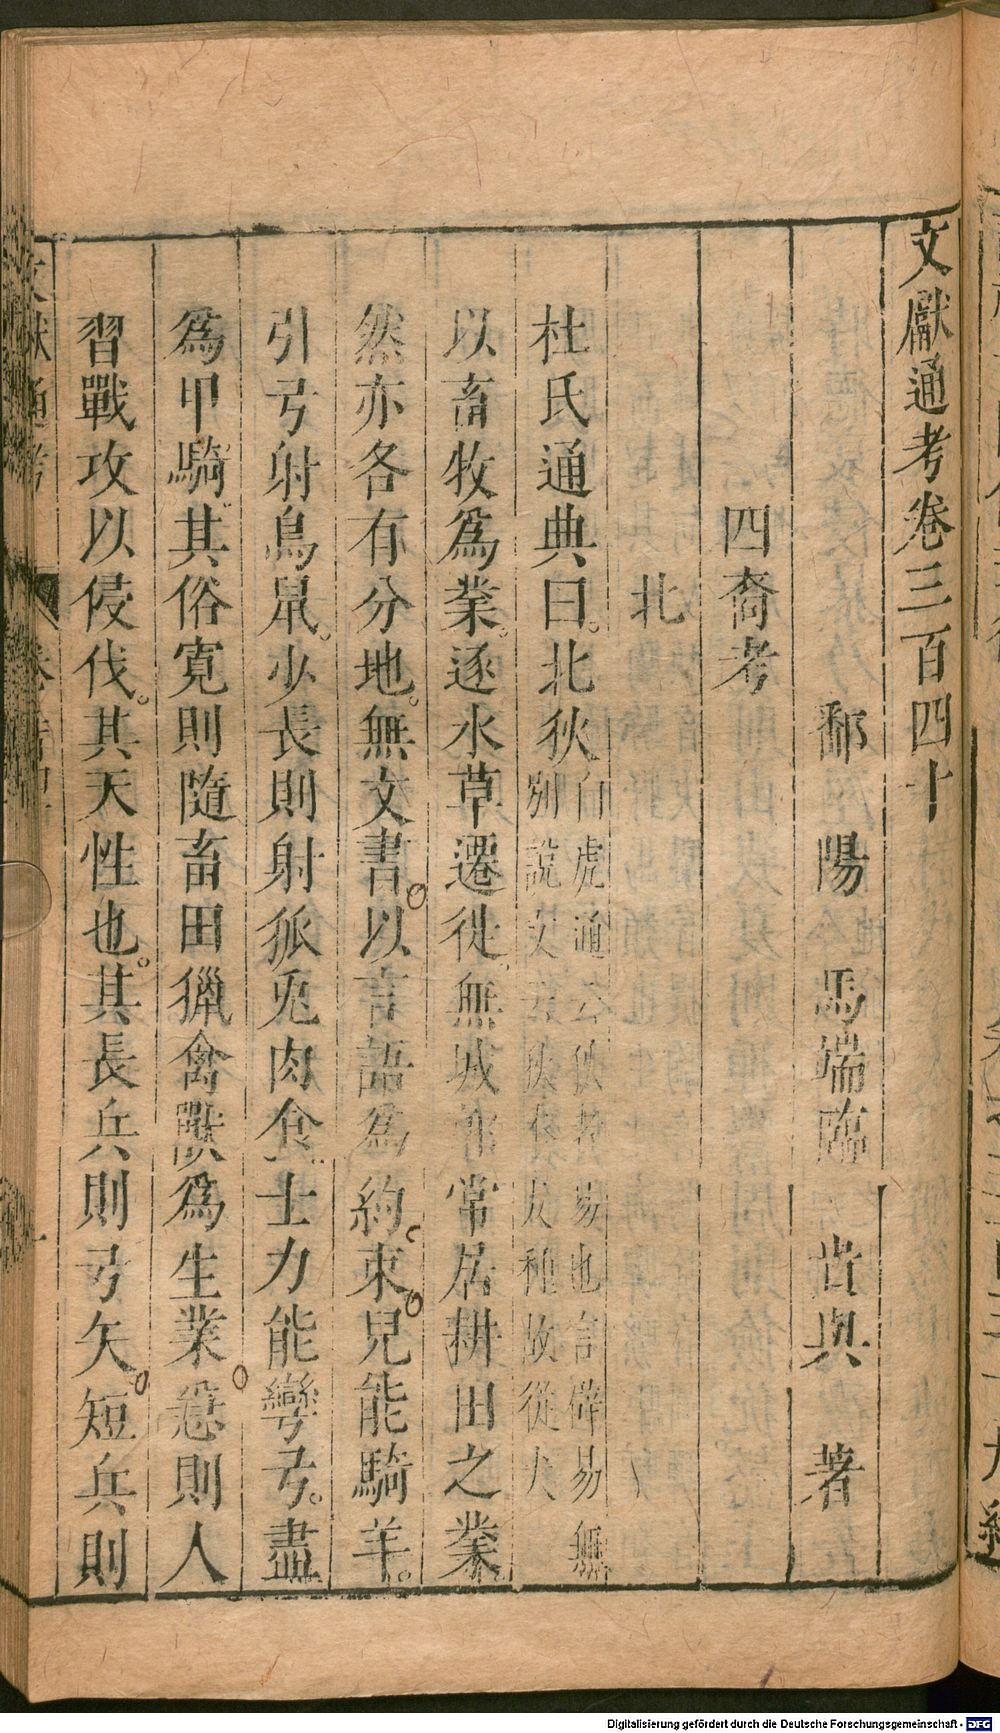 文獻通考卷三百四十
鄱陽馬端臨貴與著
四裔考
北
杜氏通典曰。北狄白虎通云狄者易也言辟易無別說文曰狄本犬種故從犬
以畜牧爲業。逐水草遷徙。無城郭常居耕田之業
然亦各有分地。無文書。以言語爲約束。兒能騎羊。
引弓射鳥鼠。少長則射狐兎肉食。士力能彎弓。盡
爲甲騎。其俗寬則隨畜田獵禽獸爲生業。急則人
習戰攻以侵伐。其天性也。其長兵則弓矢。短兵則
文獻通考
Digitalisierung gefördert durch die Deutsche Forschungsgemeinschaft - DFG